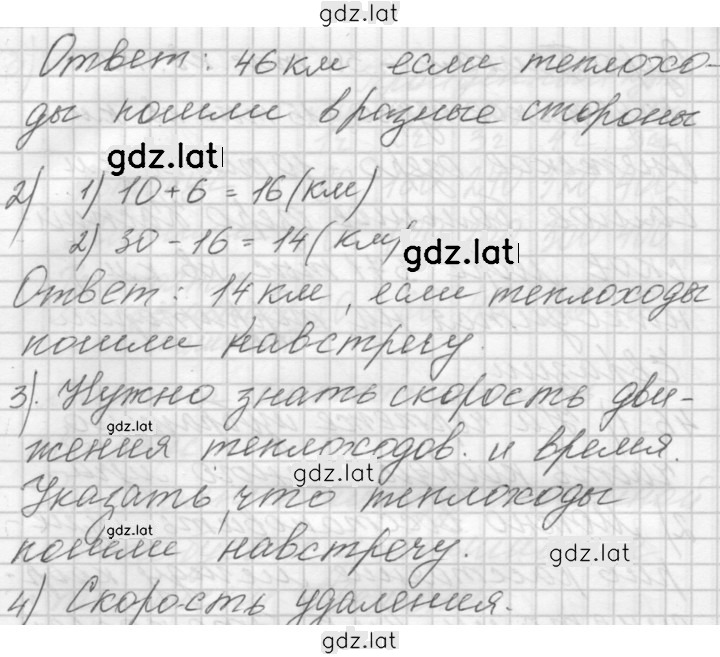 gdz.lat
Ответ: 46 км если теплохо-
ды пошли в разные стороны
gdz.lat
2) 1) 10+6=16 (км)
2) 30-16=14 (км)
gdz.lat
Ответ: 14 км, если теплоходы
пошли навстречу.
3). Нужно знать скорость дви-
gdz.lat
жения теплоходов. и время.
gdz.lat
Указать, что теплоходы
gdz.lat
пошли навстречу.
gdz.lat
4) Скорость удаления.
gdz.lat